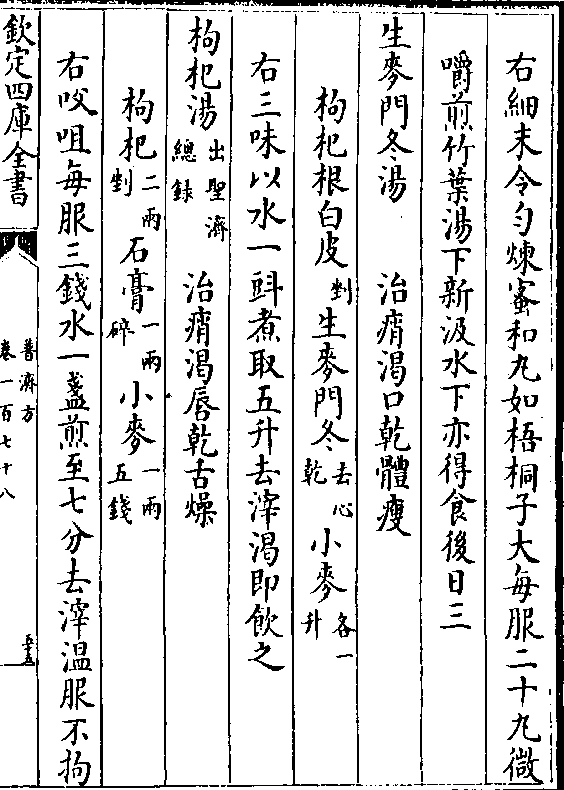 右細末令勻煉蜜和丸如梧桐子大每服二十丸微
嚼煎竹葉湯下新汲水下亦得食後日三
生麥門冬湯　治痟渴口乾體瘦
枸杞根白皮剉生麥門冬去心乾小麥各一升
右三味以水一㪷煮取五升去滓渴即飲之
枸杞湯出聖濟總錄　治痟渴唇乾舌燥
枸杞二兩剉石膏一兩碎小麥一兩五錢
右㕮咀每服三錢水一盞煎至七分去滓溫服不拘
欽定四庫全書
普濟方
卷一百七十八